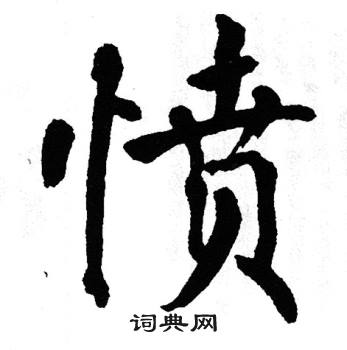 愤
词典网